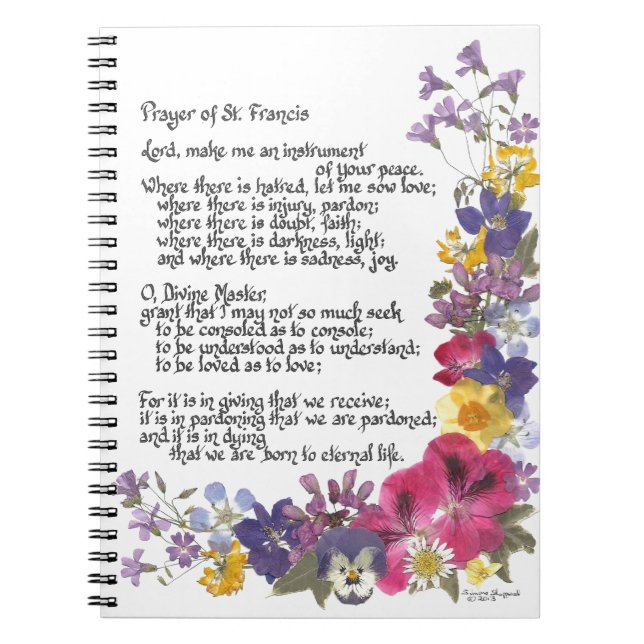 Prayer of St. Francis
Lord, make me an instrument
of Your peace.
Where there is hatred, let me sow love;
where there is injury, pardon;
where there is doubt, faith;
where there is darkness, light;
and where there is sadness, joy.
O, Divine Master,
grant that I may not so much seek
to be consoled as to console;
to be understood as to understand;
to be loved as to love;
For it is in giving that we receive;
it is in pardoning that we are pardoned;
and it is in dying
that we are born to eternal life.
© 2013